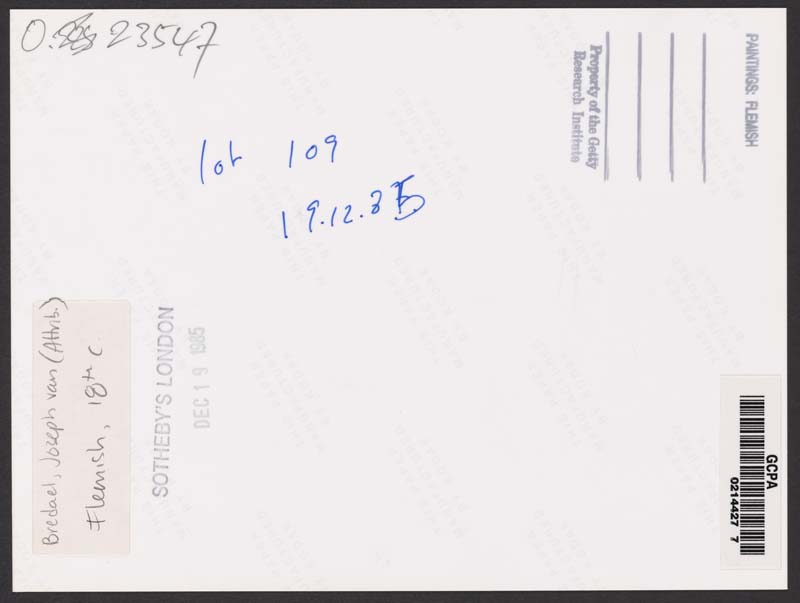 23547
lot 109
19.12.85
PAINTINGS: FLEMISH
Property of the Getty
Research Institute
Bredael, Joseph van (Attrib.)
Flemish, 18th c.
SOTHEBY'S LONDON
DEC 19 1985
GCPA
0214427 7